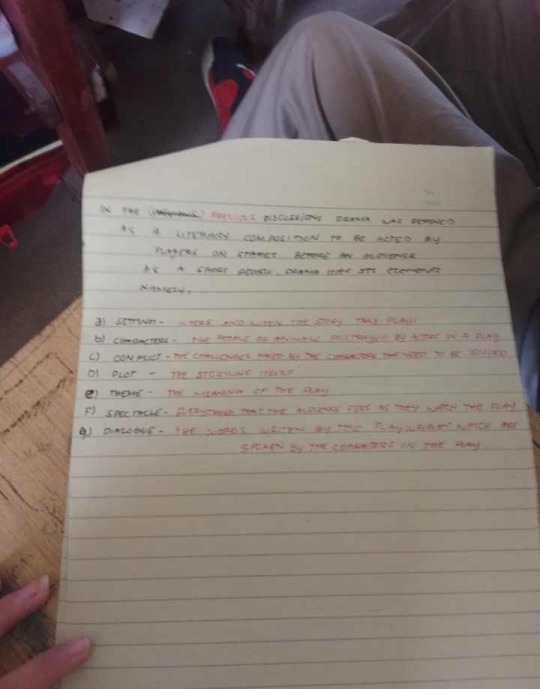 IN THE PREVIOUS DISCUSSIONS DRAMA WAS DEFINED
AS A LITERARY COMPOSITION TO BE ACTED BY
PLAYERS ON STAGES BEFORE AN AUDIENCE
AS A SHORT DRAMA HAS ITS ELEMENTS
NAMELY;
a) SETTING - WHERE AND WHEN THE STORY TAKE PLACE
b) CHARACTERS - THE PEOPLE OR ANIMALS PORTRAYED BY ACTORS IN A PLAY
c) CONFLICT - THE CHALLENGES FACED BY THE CHARACTERS THE NEED TO BE SOLVED
D) PLOT - THE STORYLINE ITSELF
e) THEME - THE MEANING OF THE PLAY
F) SPECTACLE - EVERYTHING THAT THE AUDIENCE SEES AS THEY WATCH THE PLAY
g) DIALOGUE - THE WORDS WRITEN BY THE PLAYWRIGHT WHICH ARE
SPOKEN BY THE CHARACTERS IN THE PLAY.